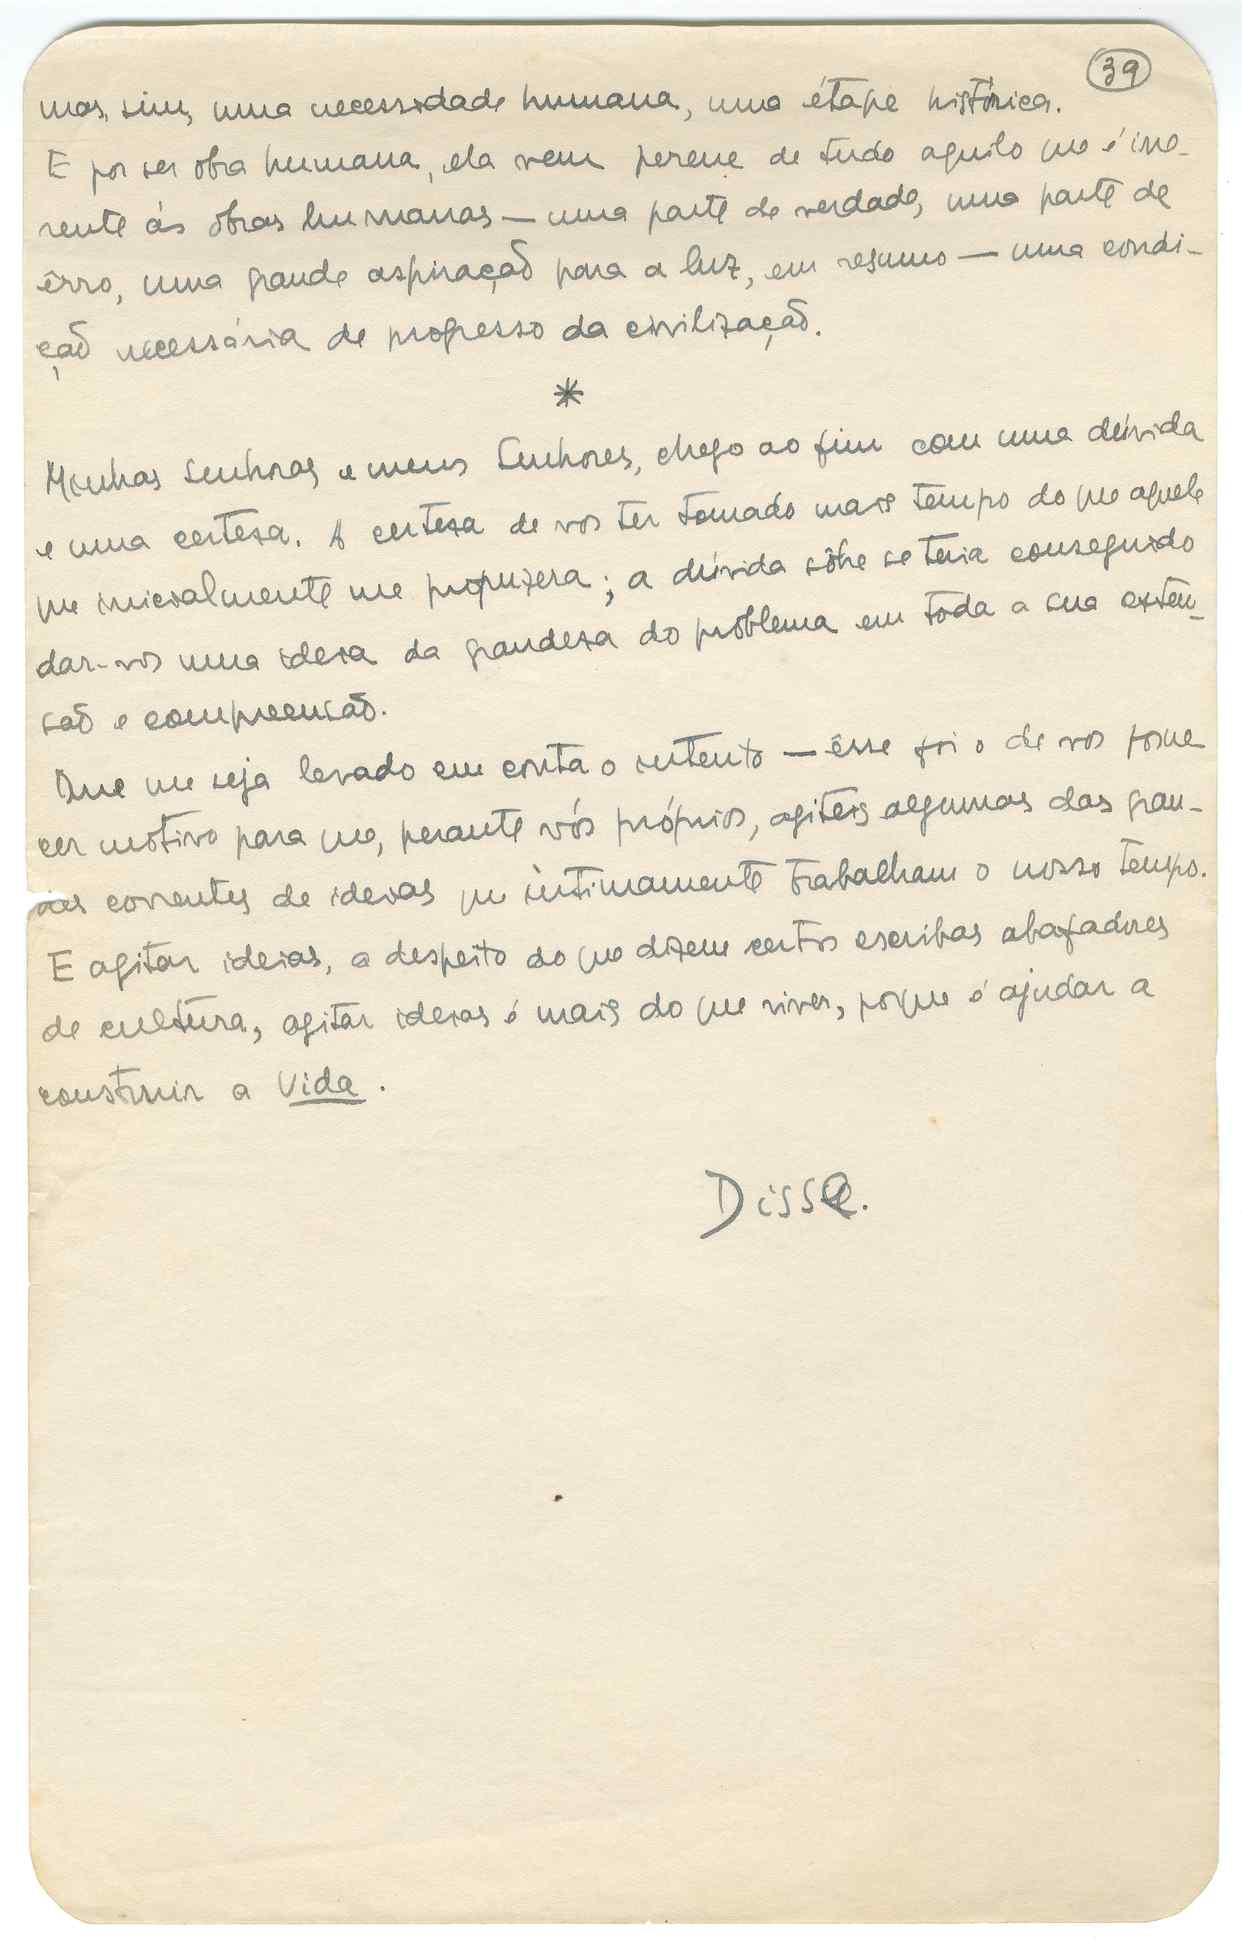 39
mas, sim, uma necessidade humana, uma étape histórica.
E por ser obra humana, ela vem perene de tudo aquilo que é ine-
rente ás obras humanas — uma parte de verdade, uma parte de
êrro, uma grande aspiração para a luz, em resumo — uma condi-
ção necessária de progresso da civilização.
*
Minhas Senhoras e meus Senhores, chego ao fim com uma dúvida
e uma certeza. A certeza de vos ter tomado mais tempo do que aquele
que inicialmente me propuzera; a dúvida sôbre se teria conseguido
dar-vos uma ideia da grandeza do problema em toda a sua exten-
são e compreensão.
Que me seja levado em conta o intento — êsse foi o de vos forne
cer motivo para que, perante vós próprios, agiteis algumas das gran-
des correntes de ideias que intimamente trabalham o nosso tempo.
E agitar ideias, a despeito do que dizem certos escribas abafadores
de cultura, agitar ideias é mais do que viver, porque é ajudar a
construir a Vida.
Disse.